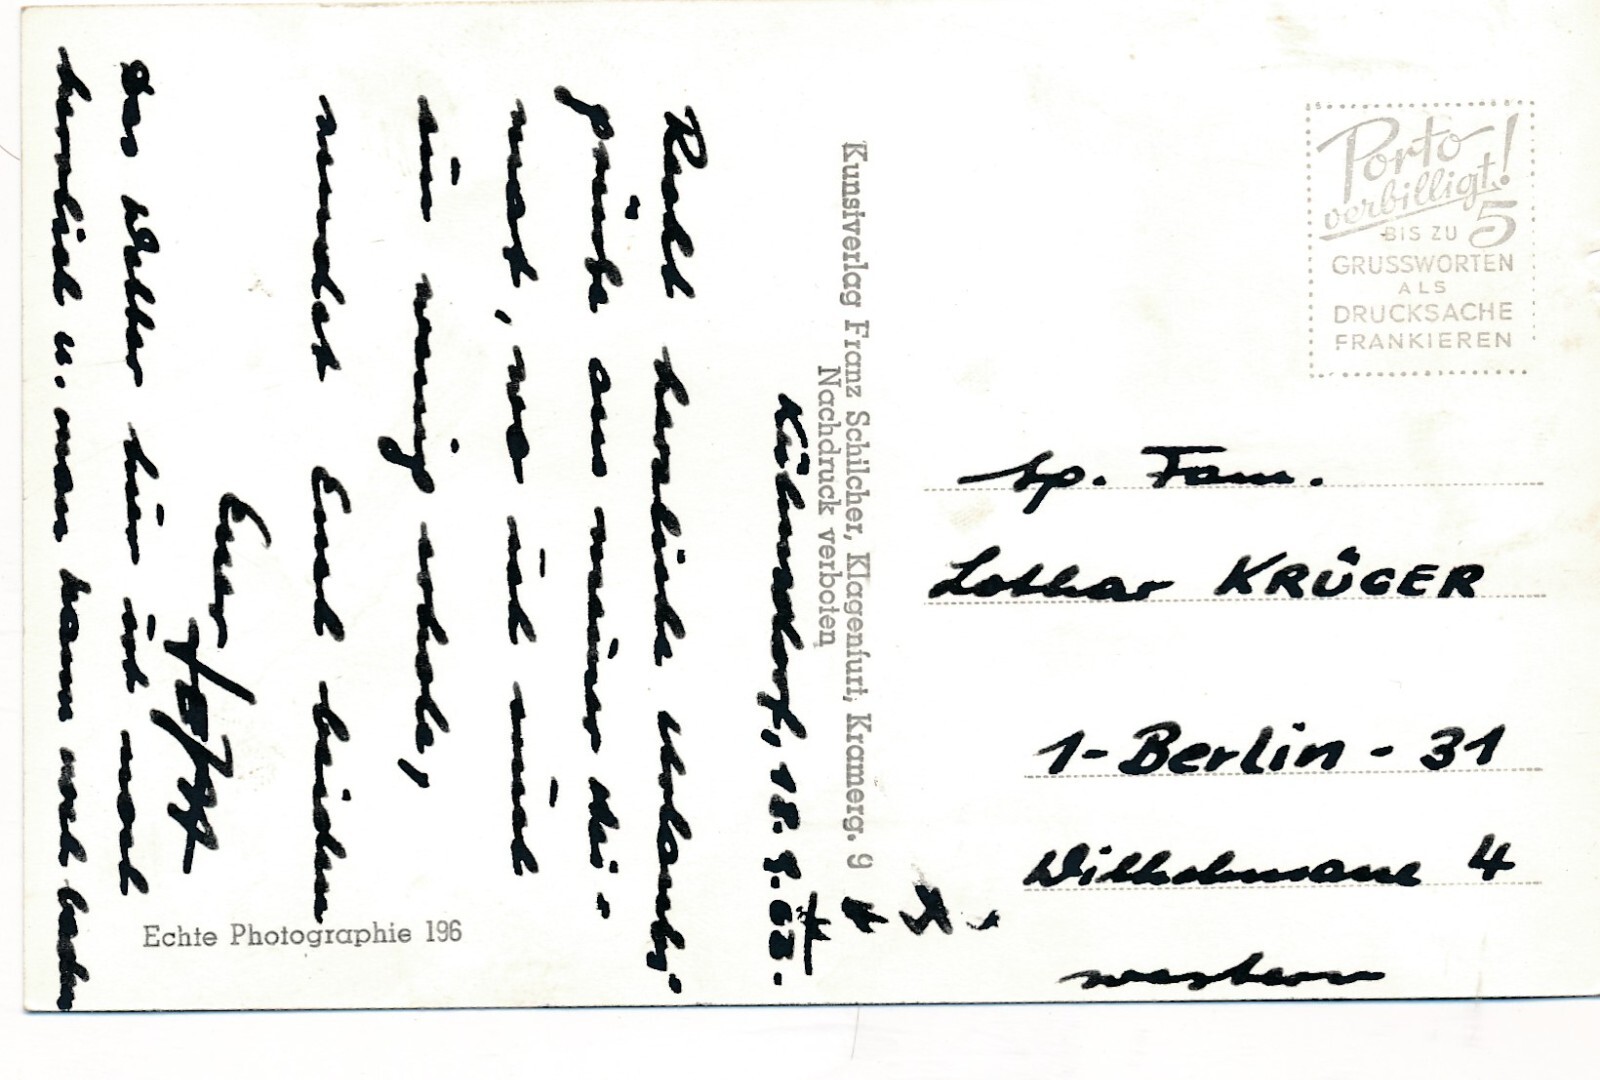 Kühnsdorf, 18.9.63.
Recht herzliche Urlaubs-
grüße aus meiner Hei-
mat, wo ich mich
ein wenig erhole,
sendet Euch beiden
Euer
Das Wetter hier ist noch
herrlich u. man kann noch baden
Echte Photographie 196
Kunstverlag Franz Schilcher, Klagenfurt, Kramerg. 9
Nachdruck verboten
Porto
verbilligt!
BIS ZU 5
GRUSSWORTEN
ALS
DRUCKSACHE
FRANKIEREN
Fam.
Lothar KRÜGER
1-Berlin-31
4